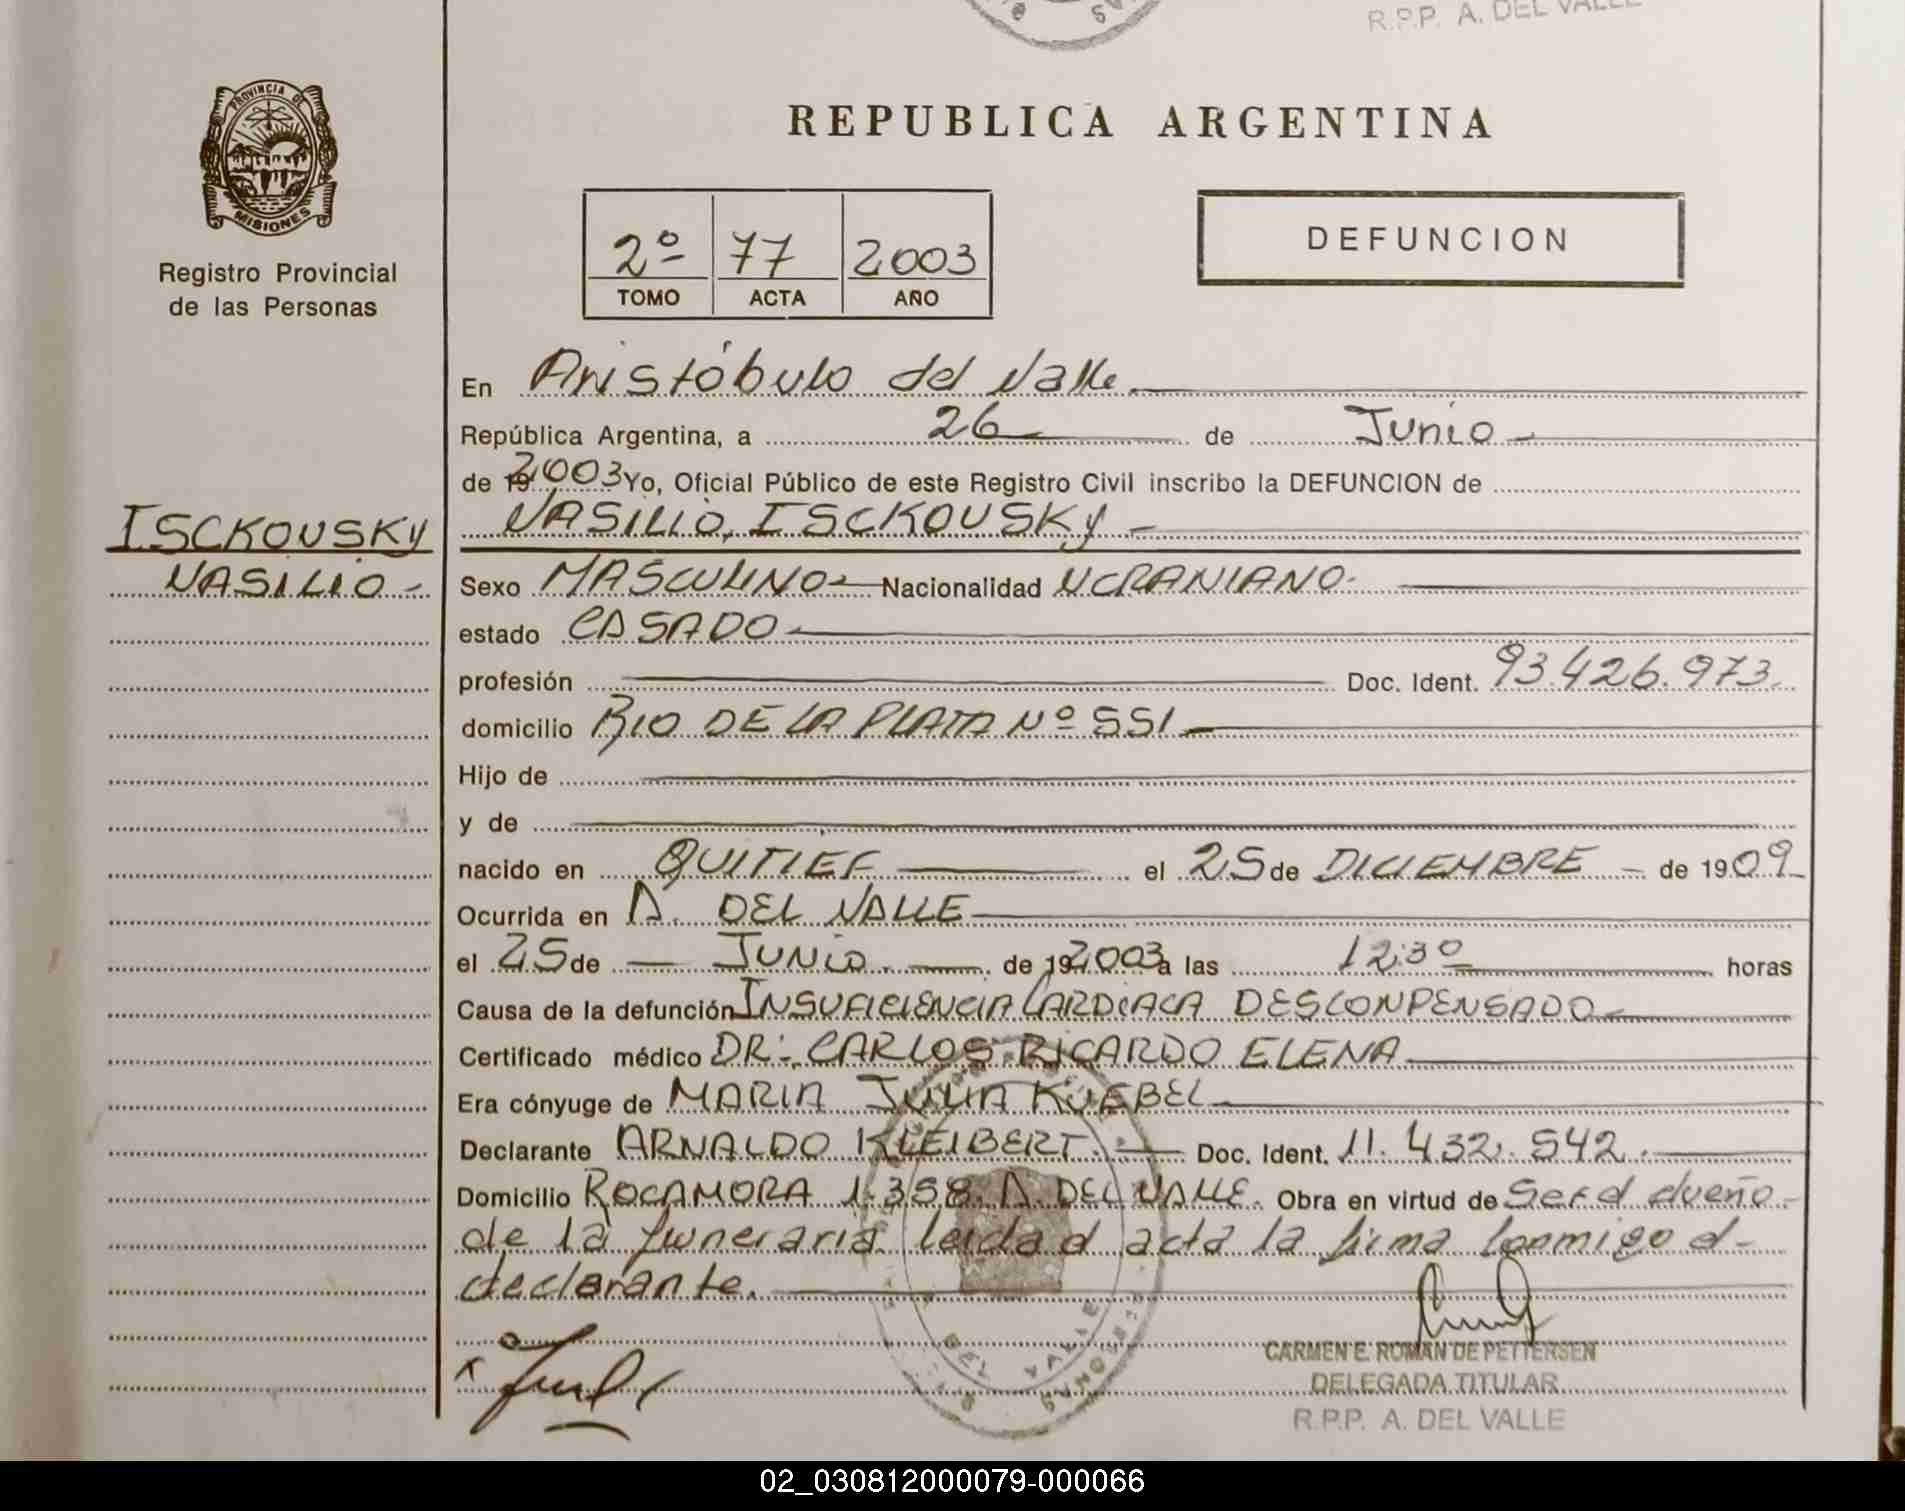 R.P.P. A. DEL VALLE
PROVINCIA DE
MISIONES
Registro Provincial
de las Personas
REPUBLICA ARGENTINA
2º 77 2003
TOMO ACTA AÑO
DEFUNCION
En Aristóbulo del Valle.
República Argentina, a 26 de Junio
de 19 2003 Yo, Oficial Público de este Registro Civil inscribo la DEFUNCION de
VASILIO, ISCKOUSKY
ISCKOUSKY
VASILIO
Sexo MASCULINO Nacionalidad UCRANIANO
estado CASADO
profesión Doc. Ident. 93.426.973
domicilio RIO DE LA PLATA Nº 551
Hijo de
y de
nacido en QUITIEF el 25 de DICIEMBRE de 1909
Ocurrida en A. DEL VALLE
el 25 de JUNIO de 19 2003 a las 12:30 horas
Causa de la defunción INSUFICIENCIA CARDIACA DESCONPENSADO
Certificado médico DR: CARLOS RICARDO ELENA
Era cónyuge de MARIA JULIA KUEBEL
Declarante ARNALDO KLEIBERT. Doc. Ident. 11.432.542.
Domicilio ROCAMORA 1.358 A. DEL VALLE. Obra en virtud de ser el dueño
de la funeraria leida el acta la firma conmigo el
declarante.
CARMEN E. ROMAN DE PETTERSEN
DELEGADA TITULAR
R.P.P. A. DEL VALLE
DEL VALLE
02_030812000079-000066